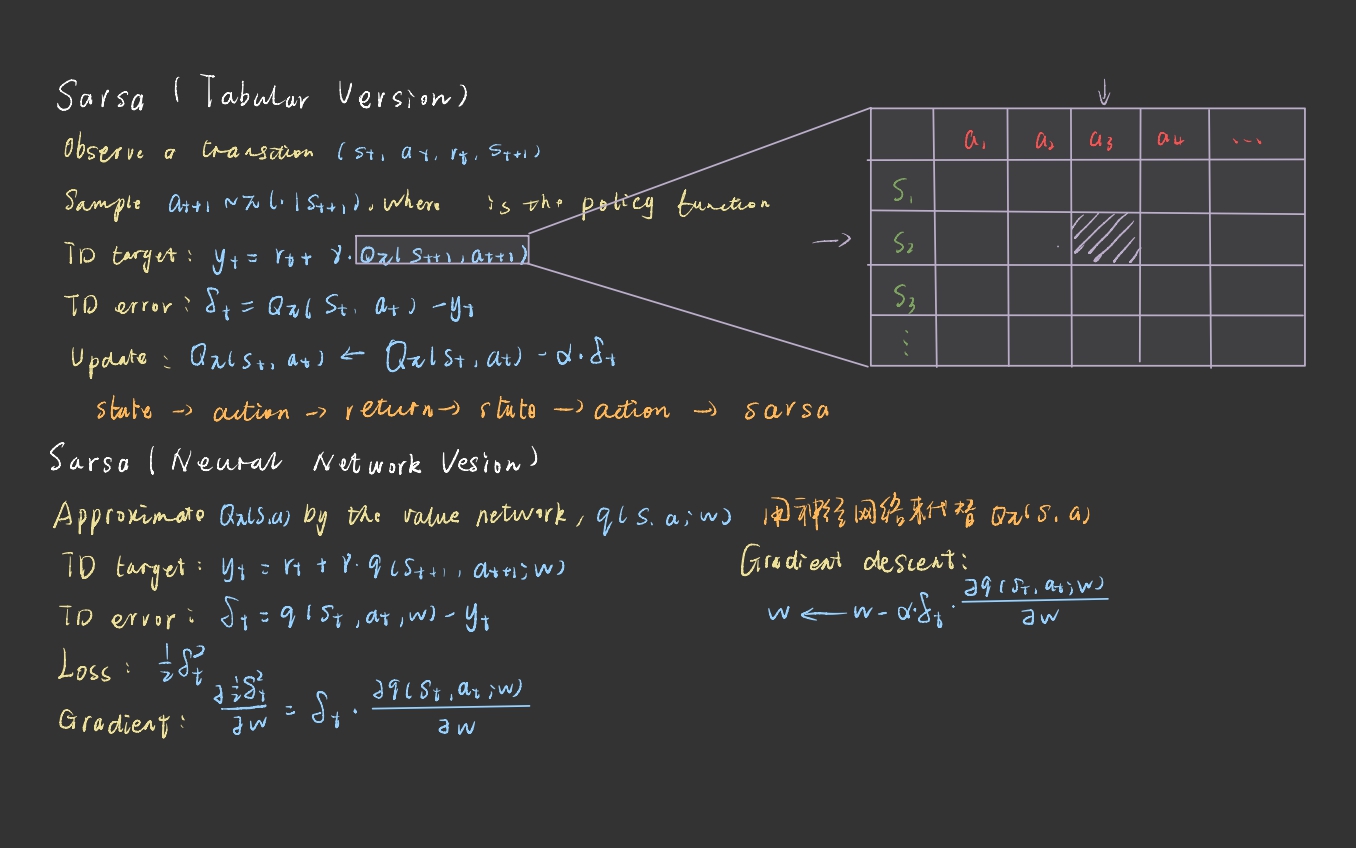 Sarsa (Tabular Version)
Observe a transition (s_t, a_t, r_t, s_{t+1})
Sample a_{t+1} ~ π(·|s_{t+1}), where is the policy function
TD target: y_t = r_t + γ·Q_π(s_{t+1}, a_{t+1})
TD error: δ_t = Q_π(s_t, a_t) - y_t
Update: Q_π(s_t, a_t) ← Q_π(s_t, a_t) - α·δ_t
state → action → return → state → action → sarsa
a_1 a_2 a_3 a_4 ...
S_1
→ S_2
S_3
⋮
Sarsa (Neural Network Vesion)
Approximate Q_π(s,a) by the value network, q(s,a;w) 用神经网络来代替 Q_π(s,a)
TD target: y_t = r_t + γ·q(s_{t+1}, a_{t+1};w)
TD error: δ_t = q(s_t, a_t, w) - y_t
Loss: ½δ_t²
Gradient: ∂½δ_t²/∂w = δ_t · ∂q(s_t, a_t;w)/∂w
Gradient descent:
w ← w - α·δ_t · ∂q(s_t, a_t;w)/∂w